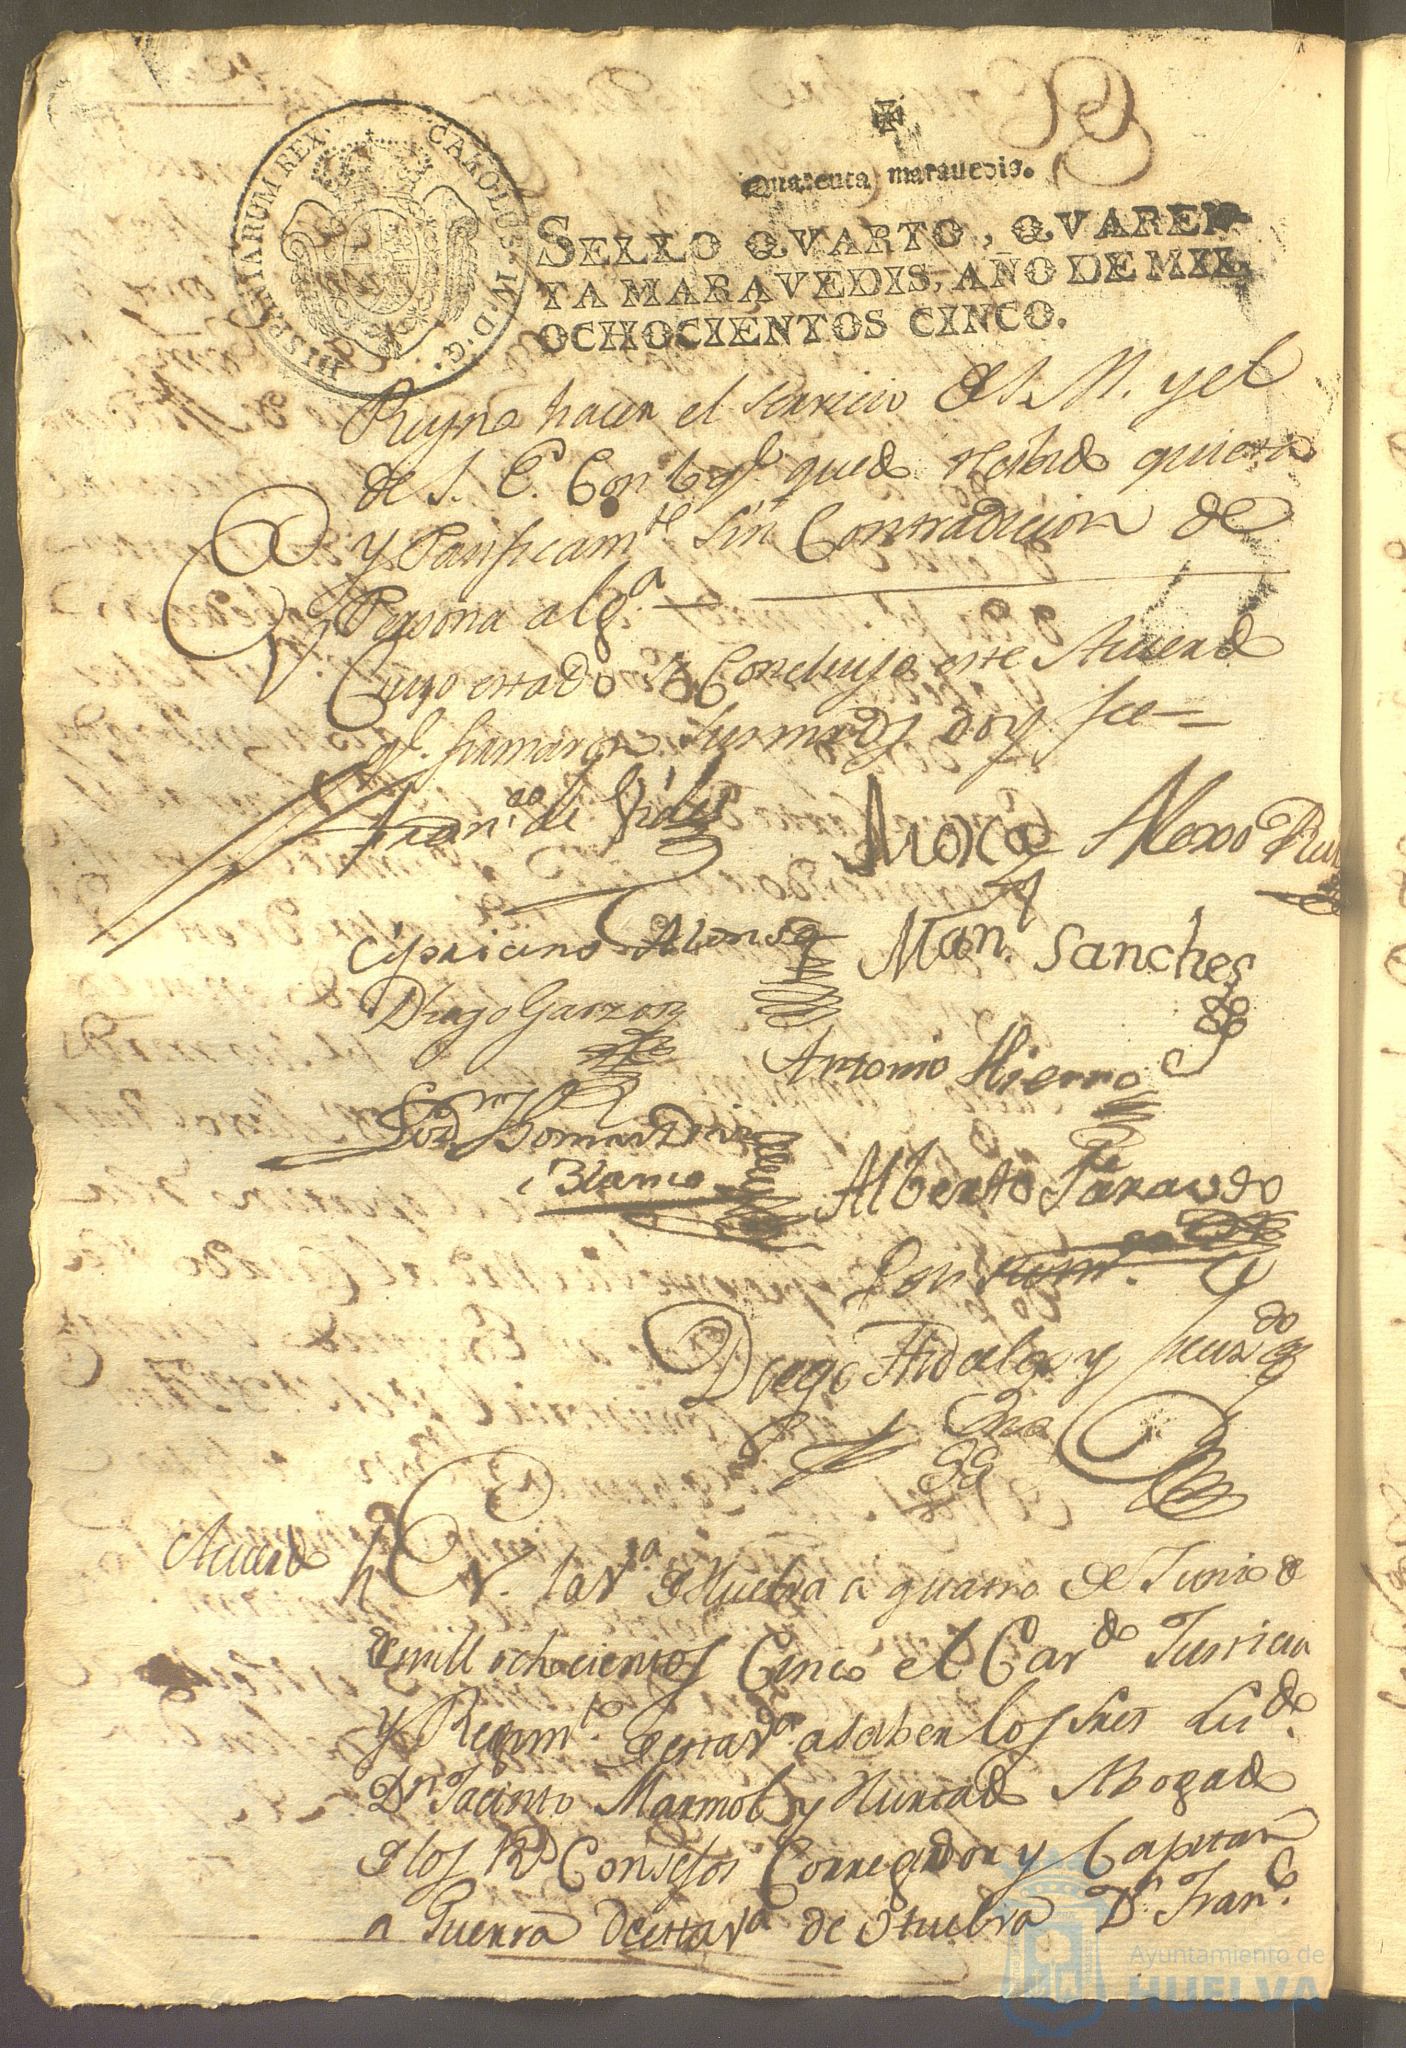 HISPANIARUM REX. CAROLUS. IV. D. G.
Quarenta maravedis.
SELLO QVARTO, QVAREN-
TA MARAVEDIS, AÑO DE MIL
OCHOCIENTOS CINCO.
hacer el servicio S. M. y el
de S. E. Con lo ql. quedo quieta
y Pasificamte. sin Contradicion de
Persona alga.
Cuyo estado se Concluyo este Acuerdo
ql. firmaron sus mrds doy fee
de
Alexo
Cipriano Alonso Manl. Sanches
Diego Garzon
Antonio Hierro
Blanco
Alberto Faraudo
Diego Hidalgo y
Acuerdo En la Va. de Huelva a quatro de Junio de
de mill ochocientos Cinco el Cavdo. Justicia
y Regimto. de esta Va. a saber los Sres Licdo.
Dn. Jacinto Marmol y Hurtado Abogado
de los Rs Consejos Corregidor y Capitan
a Guerra de esta Va. de Huelva Dn. Franco.
Ayuntamiento de
HUELVA